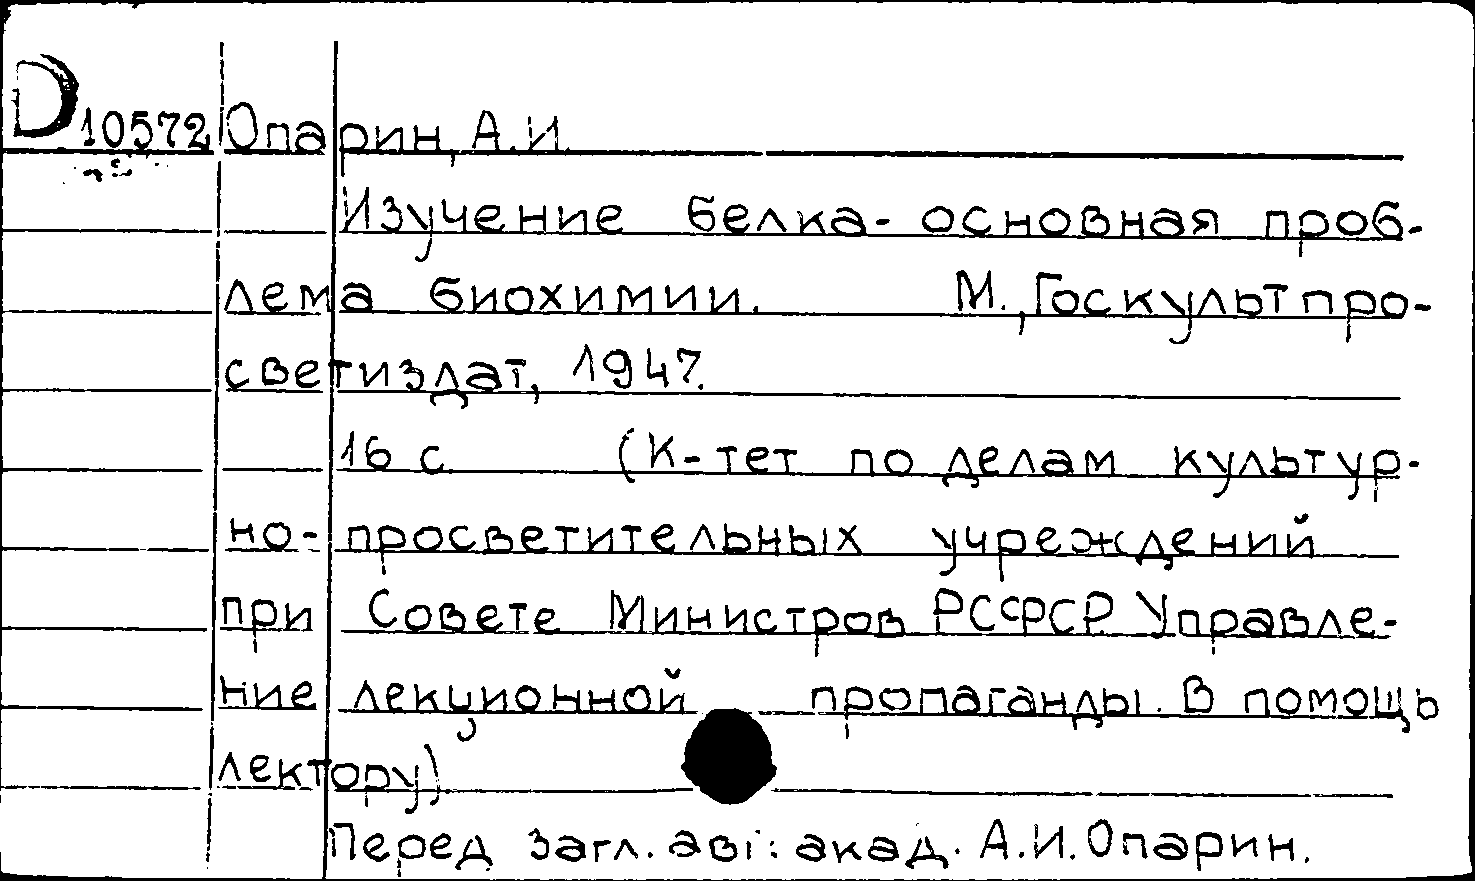 D10572 Опарин, А.И.
Изучение белка- основная проб-
лема биохимии. М., Госкультпро-
светиздат, 1947.
16 с. (К-тет по делам культур-
но-просветительных учреждений
при Совете Министров РСФСР. Управле-
ние лекционной пропаганды. В помощь
лектору).
Перед загл. авт: акад. А.И.Опарин.